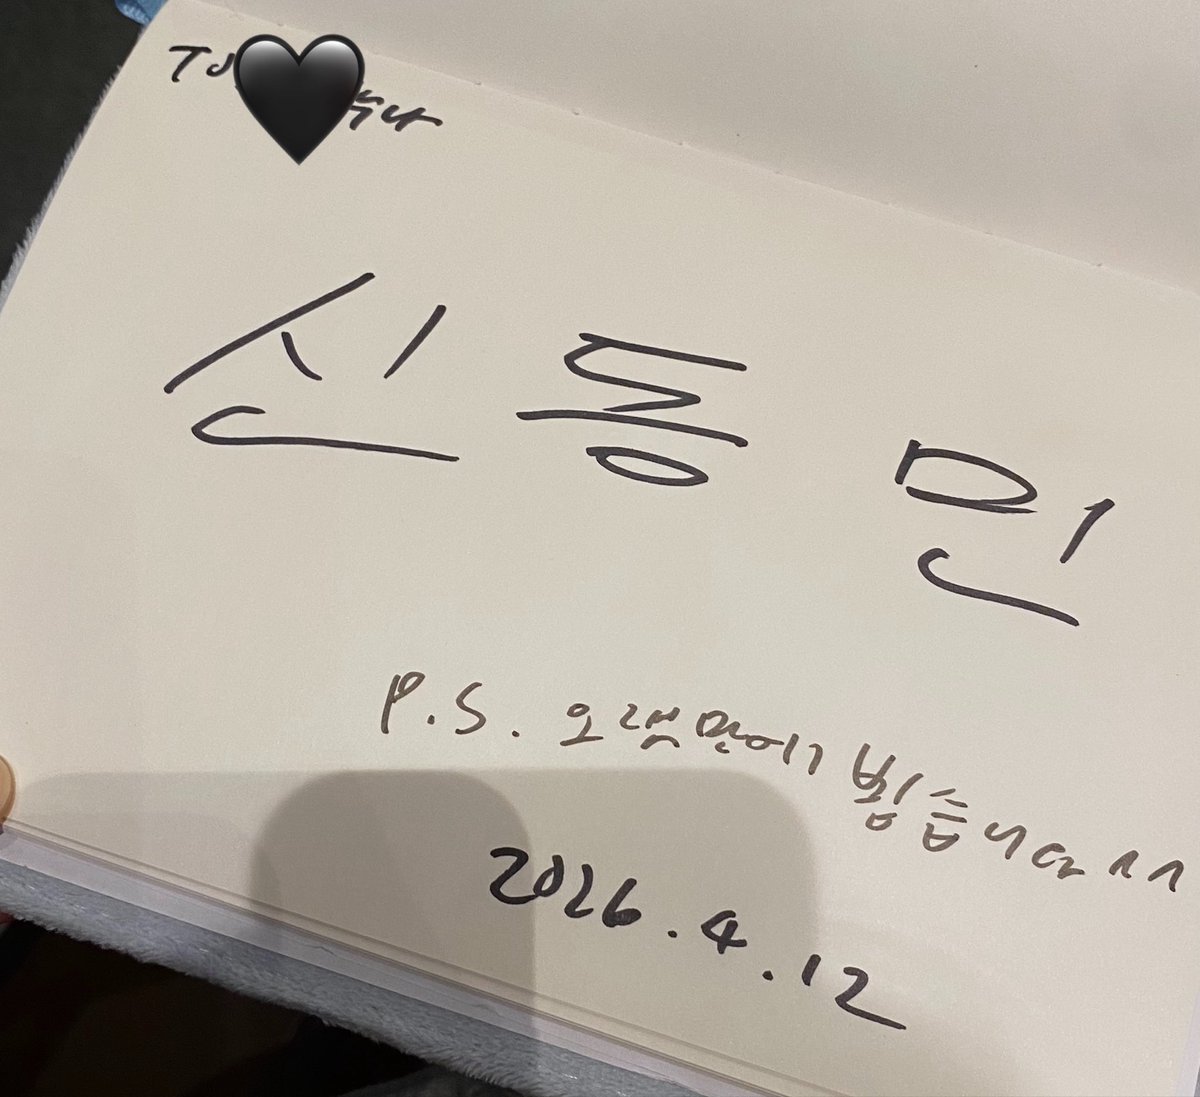 To
신동민
P.S. 오랜만에 뵙습니다 ^^
2026.4.12